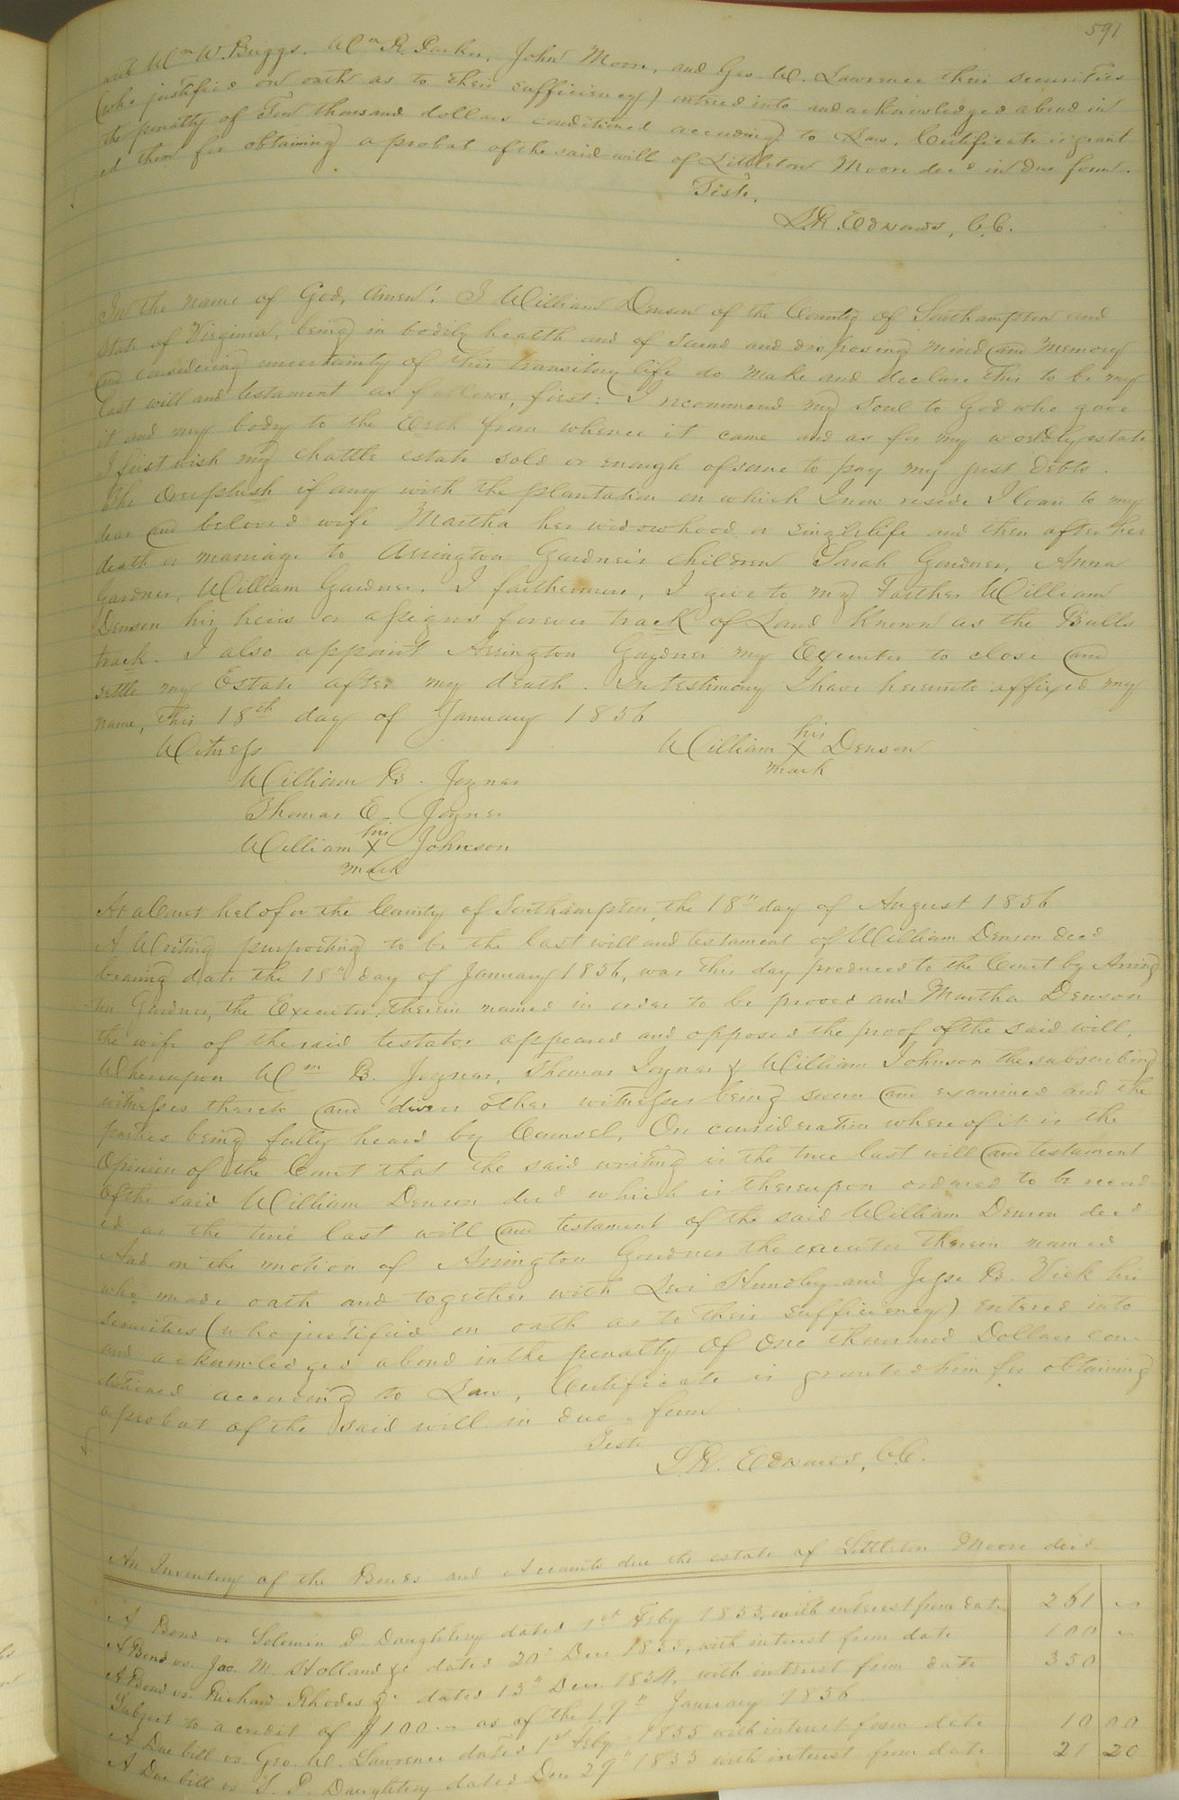 591
with Wm W. Briggs, Wm R. Parker, John Moore, and Geo. W. Lawrence their securities
(who justified on oath as to their sufficiency) entered into and acknowledged a bond in
the penalty of Ten thousand dollars conditioned according to Law. Certificate is grant
ed them for obtaining a probat of the said will of Littleton Moore decd in due form.
Teste,
L.R. Edwards, C.C.
In the name of God, Amen! I William Denson of the County of Southampton and
State of Virginia, being in bodily health and of sound and disposing mind and memory
and considering uncertainty of this transitory life do make and declare this to be my
last will and testament as follows, first: I recommend my soul to God who gave
it and my body to the Erth from whence it came and as for my worldly estate
I first wish my chattle estate sold or enough of same to pay my just debts.
The overplush if any with the plantation on which I now reside I loan to my
dear and beloved wife Martha her widowhood or single life and then after her
death or marriage to Arrington Gardner's children Sarah Gardner, Anna
Gardner, William Gardner. I farthermore, I give to my Farther William
Denson his heirs or assigns forever track of Land known as the Bulls
track. I also appoint Arrington Gardner my Executor to close and
settle my Estate after my death. In testimony I have hereunto affixed my
name, this 18th day of January 1856
Witness
William his X mark Denson
William B. Joyner
Thomas E. Joyner
William his X mark Johnson
At a Court held for the County of Southampton, the 18th day of August 1856
A Writing purporting to be the last will and testament of William Denson decd
bearing date the 18th day of January 1856, was this day produced to the Court by Arring
ton Gardner, the Executor therein named in order to be proved and Martha Denson
the wife of the said testator appeared and opposed the proof of the said will,
Whereupon Wm B. Joyner, Thomas Joyner & William Johnson the subscribing
witnesses thereto and divers other witnesses being sworn and examined and the
parties being fully heard by Counsel, On consideration whereof it is the
Opinion of the Court that the said writing is the true last will and testament
of the said William Denson decd which is thereupon ordered to be record
ed as the true last will and testament of the said William Denson decd
And on the motion of Arrington Gardner the executor therein named
who made oath and together with Levi Hundley and Jesse B. Vick his
securities (who justified on oath as to their sufficiency) entered into
and acknowledged a bond in the penalty of One thousand Dollars con-
ditioned according to Law, Certificate is granted him for obtaining
a probat of the said will in due form.
Teste
L.R. Edwards, C.C.
An Inventory of the Bonds and Accounts due the estate of Littleton Moore decd
A Bond vs Solomon D. Daughtery dated 1st Feby 1853, with interest from date 261
A Bond vs. Jac. M. Holland &c dated 20th Decr 1855, with interest from date 100
A Bond vs. Richard Rhodes &c dated 13th Decr 1854, with interest from date 350
Subject to a credit of $100 as of the 19th January 1856
A Due bill vs Geo. W. Lawrence dated 1st Feby 1855 with interest from date 10 00
A Due bill vs S. P. Daughtery dated Decr 29th 1853 with interest from date 21 20